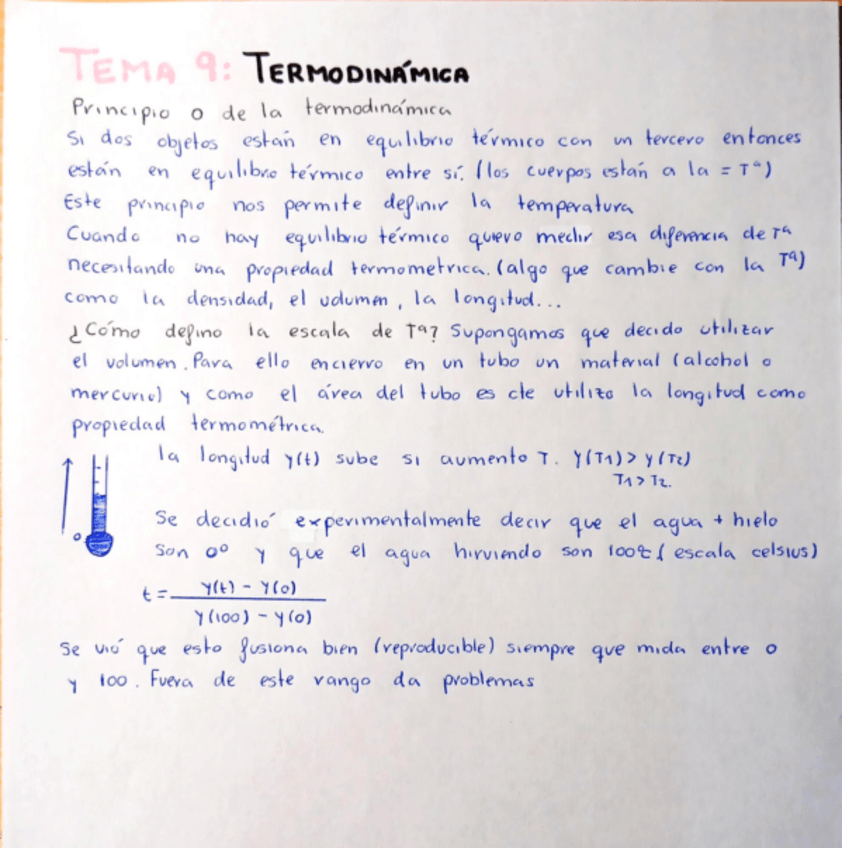 TEMA 9: TERMODINÁMICA
Principio 0 de la termodinámica
Si dos objetos están en equilibrio térmico con un tercero entonces
están en equilibrio térmico entre sí. (los cuerpos están a la = Tª)
Este principio nos permite definir la temperatura
Cuando no hay equilibrio térmico quiero medir esa diferencia de Tª
necesitando una propiedad termometrica. (algo que cambie con la Tª)
como la densidad, el volumen, la longitud...
¿Cómo defino la escala de Tª? Supongamos que decido utilizar
el volumen. Para ello encierro en un tubo un material (alcohol o
mercurio) y como el área del tubo es cte utilizo la longitud como
propiedad termométrica.
la longitud y(t) sube si aumento T. y(T1) > y(T2)
T1 > T2.
0
Se decidió experimentalmente decir que el agua + hielo
son 0º y que el agua hirviendo son 100ºc (escala celsius)
t = y(t) - y(0)
y(100) - y(0)
Se vió que esto fusiona bien (reproducible) siempre que mida entre 0
y 100. Fuera de este rango da problemas